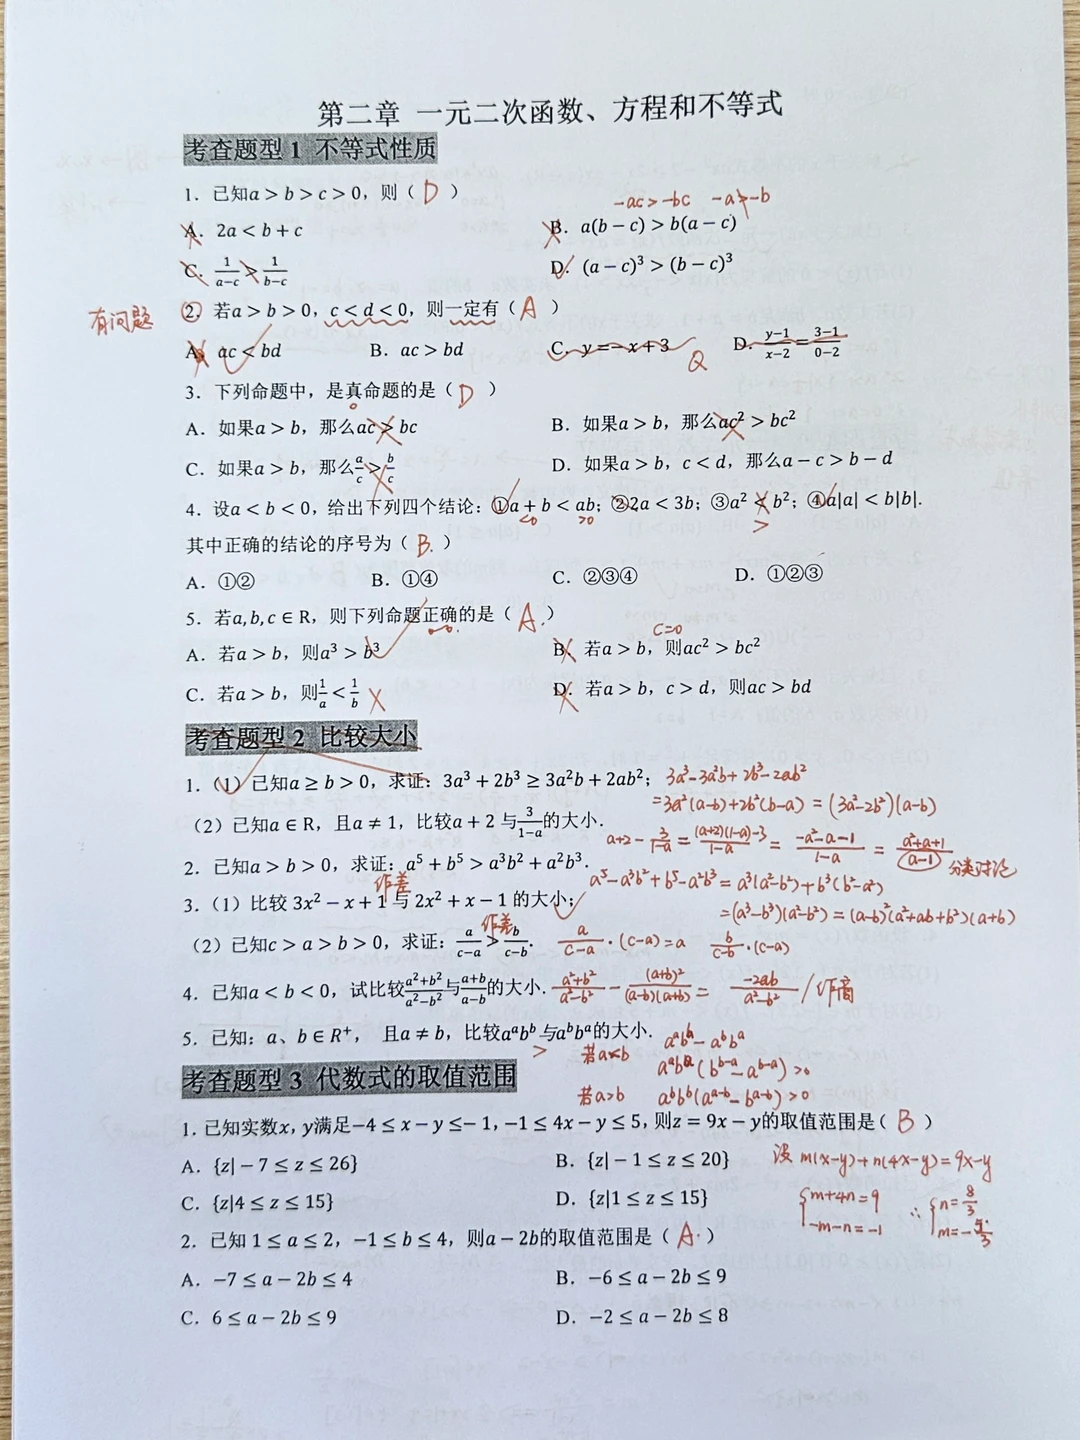 第二章 一元二次函数、方程和不等式
考查题型 1 不等式性质
1．已知a > b > c > 0，则（ D ）
-ac > -bc -a > -b
A．2a < b + c B．a(b − c) > b(a − c)
C．1/(a−c) > 1/(b−c) D．(a − c)³ > (b − c)³
有问题 2．若a > b > 0，c < d < 0，则一定有（ A ）
A．ac < bd B．ac > bd C．y = −x + 3 D．(y−1)/(x−2) = (3−1)/(0−2)
3．下列命题中，是真命题的是（ D ）
A．如果a > b，那么ac > bc B．如果a > b，那么ac² > bc²
C．如果a > b，那么a/c > b/c D．如果a > b，c < d，那么a − c > b − d
4．设a < b < 0，给出下列四个结论：①a + b < ab；②2a < 3b；③a² < b²；④a|a| < b|b|．
<0 >0 >
其中正确的结论的序号为（ B. ）
A．①② B．①④ C．②③④ D．①②③
5．若a, b, c ∈ R，则下列命题正确的是（ A. ）
c=0
A．若a > b，则a³ > b³ B．若a > b，则ac² > bc²
C．若a > b，则1/a < 1/b D．若a > b，c > d，则ac > bd
考查题型 2 比较大小
1．（1）已知a ≥ b > 0，求证：3a³ + 2b³ ≥ 3a²b + 2ab²； 3a³-3a²b+2b³-2ab²
=3a²(a-b)+2b²(b-a) = (3a²-2b²)(a-b)
（2）已知a ∈ R，且a ≠ 1，比较a + 2 与 3/(1−a) 的大小．
a+2 - 3/(1-a) = ((a+2)(1-a)-3)/(1-a) = (-a²-a-1)/(1-a) = (a²+a+1)/(a-1) 分类讨论
2．已知a > b > 0，求证：a⁵ + b⁵ > a³b² + a²b³．
a⁵-a³b²+b⁵-a²b³ = a³(a²-b²)+b³(b²-a²)
作差
3．（1）比较 3x² − x + 1 与 2x² + x − 1 的大小；
=(a³-b³)(a²-b²) = (a-b)²(a²+ab+b²)(a+b)
作差
（2）已知c > a > b > 0，求证：a/(c−a) > b/(c−b)． a/(c-a)·(c-a)=a b/(c-b)·(c-a)
4．已知a < b < 0，试比较(a²+b²)/(a²−b²)与(a+b)/(a−b)的大小． (a²+b²)/(a²-b²) - (a+b)²/((a-b)(a+b)) = -2ab/(a²-b²) / 作商
5．已知：a、b ∈ R⁺， 且a ≠ b，比较aᵃbᵇ与aᵇbᵃ的大小． aᵃbᵇ - aᵇbᵃ
>
若a<b aᵃbᵃ(bᵇ⁻ᵃ-aᵇ⁻ᵃ)>0
考查题型 3 代数式的取值范围
若a>b aᵇbᵇ(aᵃ⁻ᵇ-bᵃ⁻ᵇ)>0
1．已知实数x，y满足−4 ≤ x − y ≤ − 1，−1 ≤ 4x − y ≤ 5，则z = 9x − y的取值范围是（ B ）
A．{z| − 7 ≤ z ≤ 26} B．{z| − 1 ≤ z ≤ 20} 设 m(x-y)+n(4x-y)=9x-y
C．{z|4 ≤ z ≤ 15} D．{z|1 ≤ z ≤ 15} {m+4n=9 -m-n=-1 ∴ {n=8/3 m=-5/3
2．已知 1 ≤ a ≤ 2，−1 ≤ b ≤ 4，则a − 2b的取值范围是（ A. ）
A．−7 ≤ a − 2b ≤ 4 B．−6 ≤ a − 2b ≤ 9
C．6 ≤ a − 2b ≤ 9 D．−2 ≤ a − 2b ≤ 8